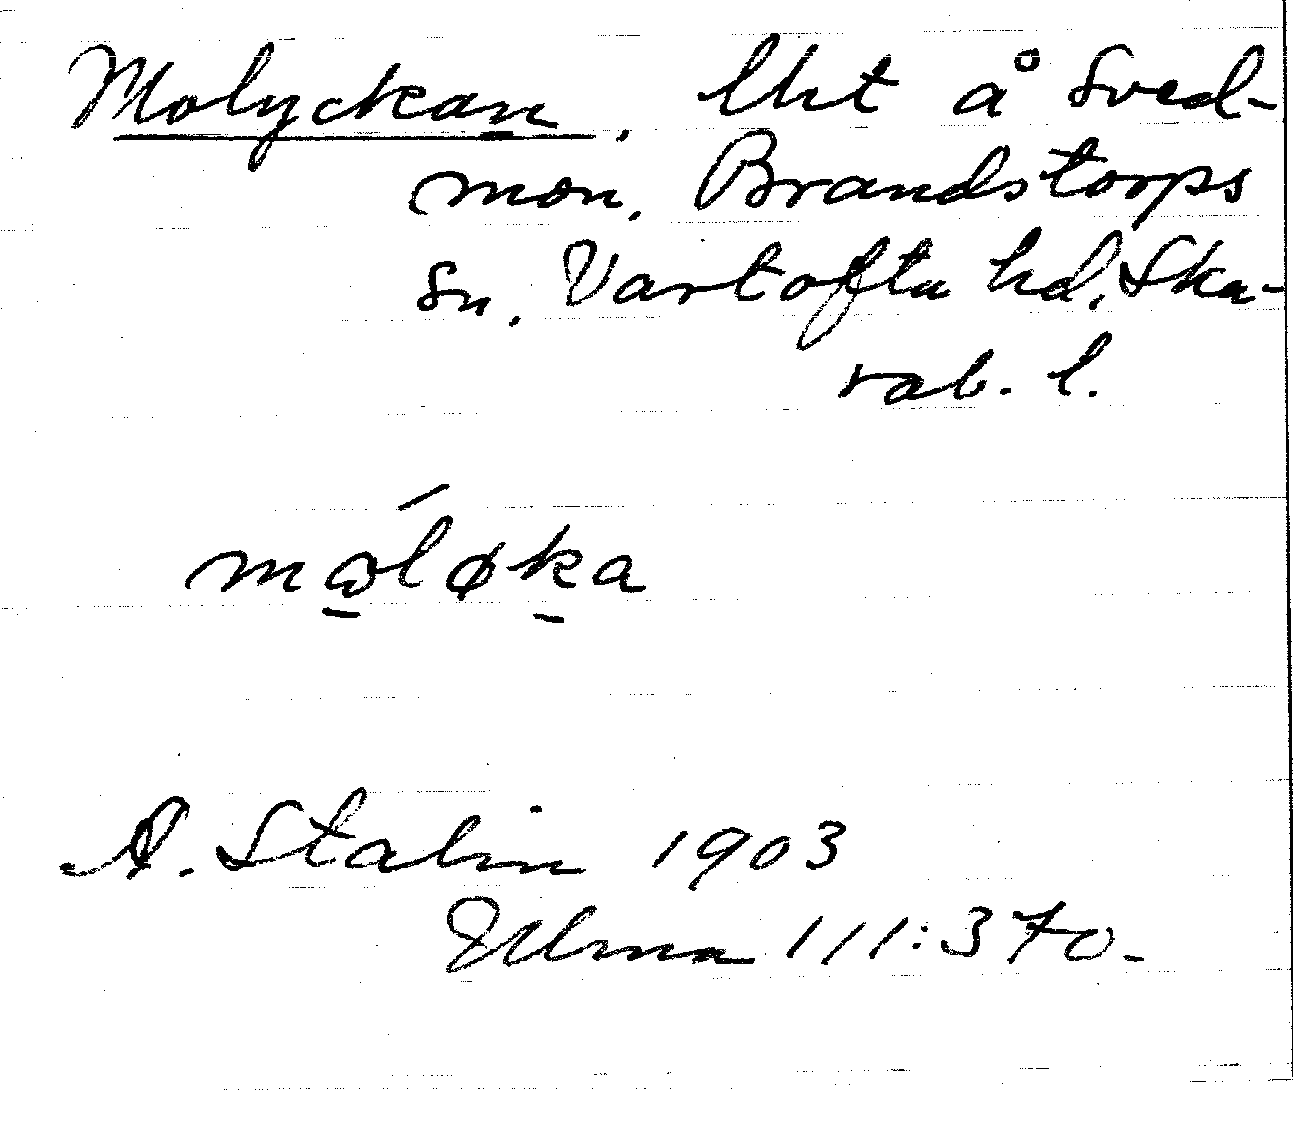 Molyckan. lht å Sved-
mon. Brandstorps
sn. Vartofta hd. Ska-
rab. l.
mώ̲løk̲a
A. Stalin 1903
Ulma 111:370.